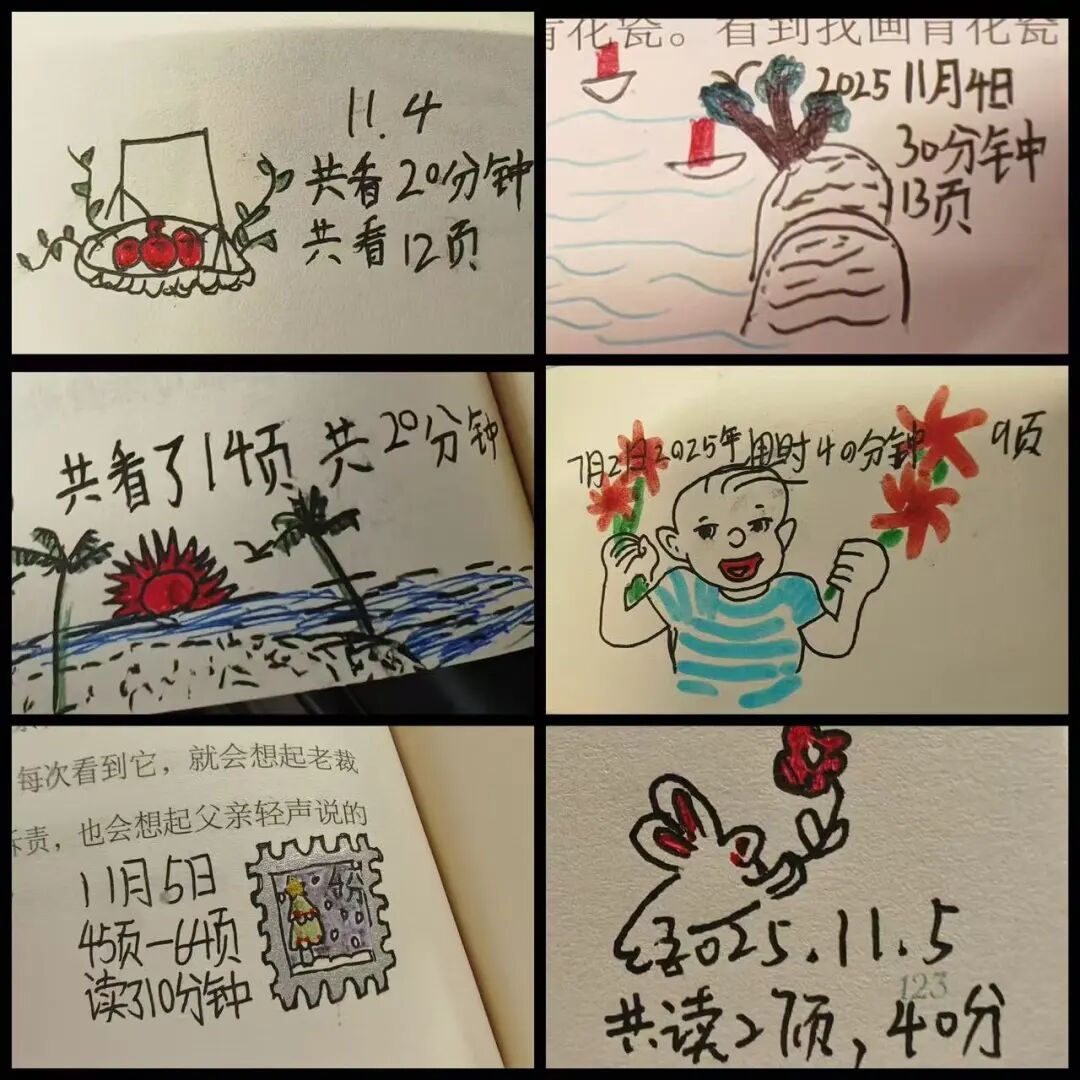 11.4
共看20分钟
共看12页
青花瓷。看到我画青花瓷
2025 11月4日
30分钟
13页
共看了14页 共20分钟
7月2日2025年用时40分钟 9页
每次看到它，就会想起老裁
责，也会想起父亲轻声说的
11月5日
45页—64页
读了10分钟
2025.11.5
123
共读27页，40分